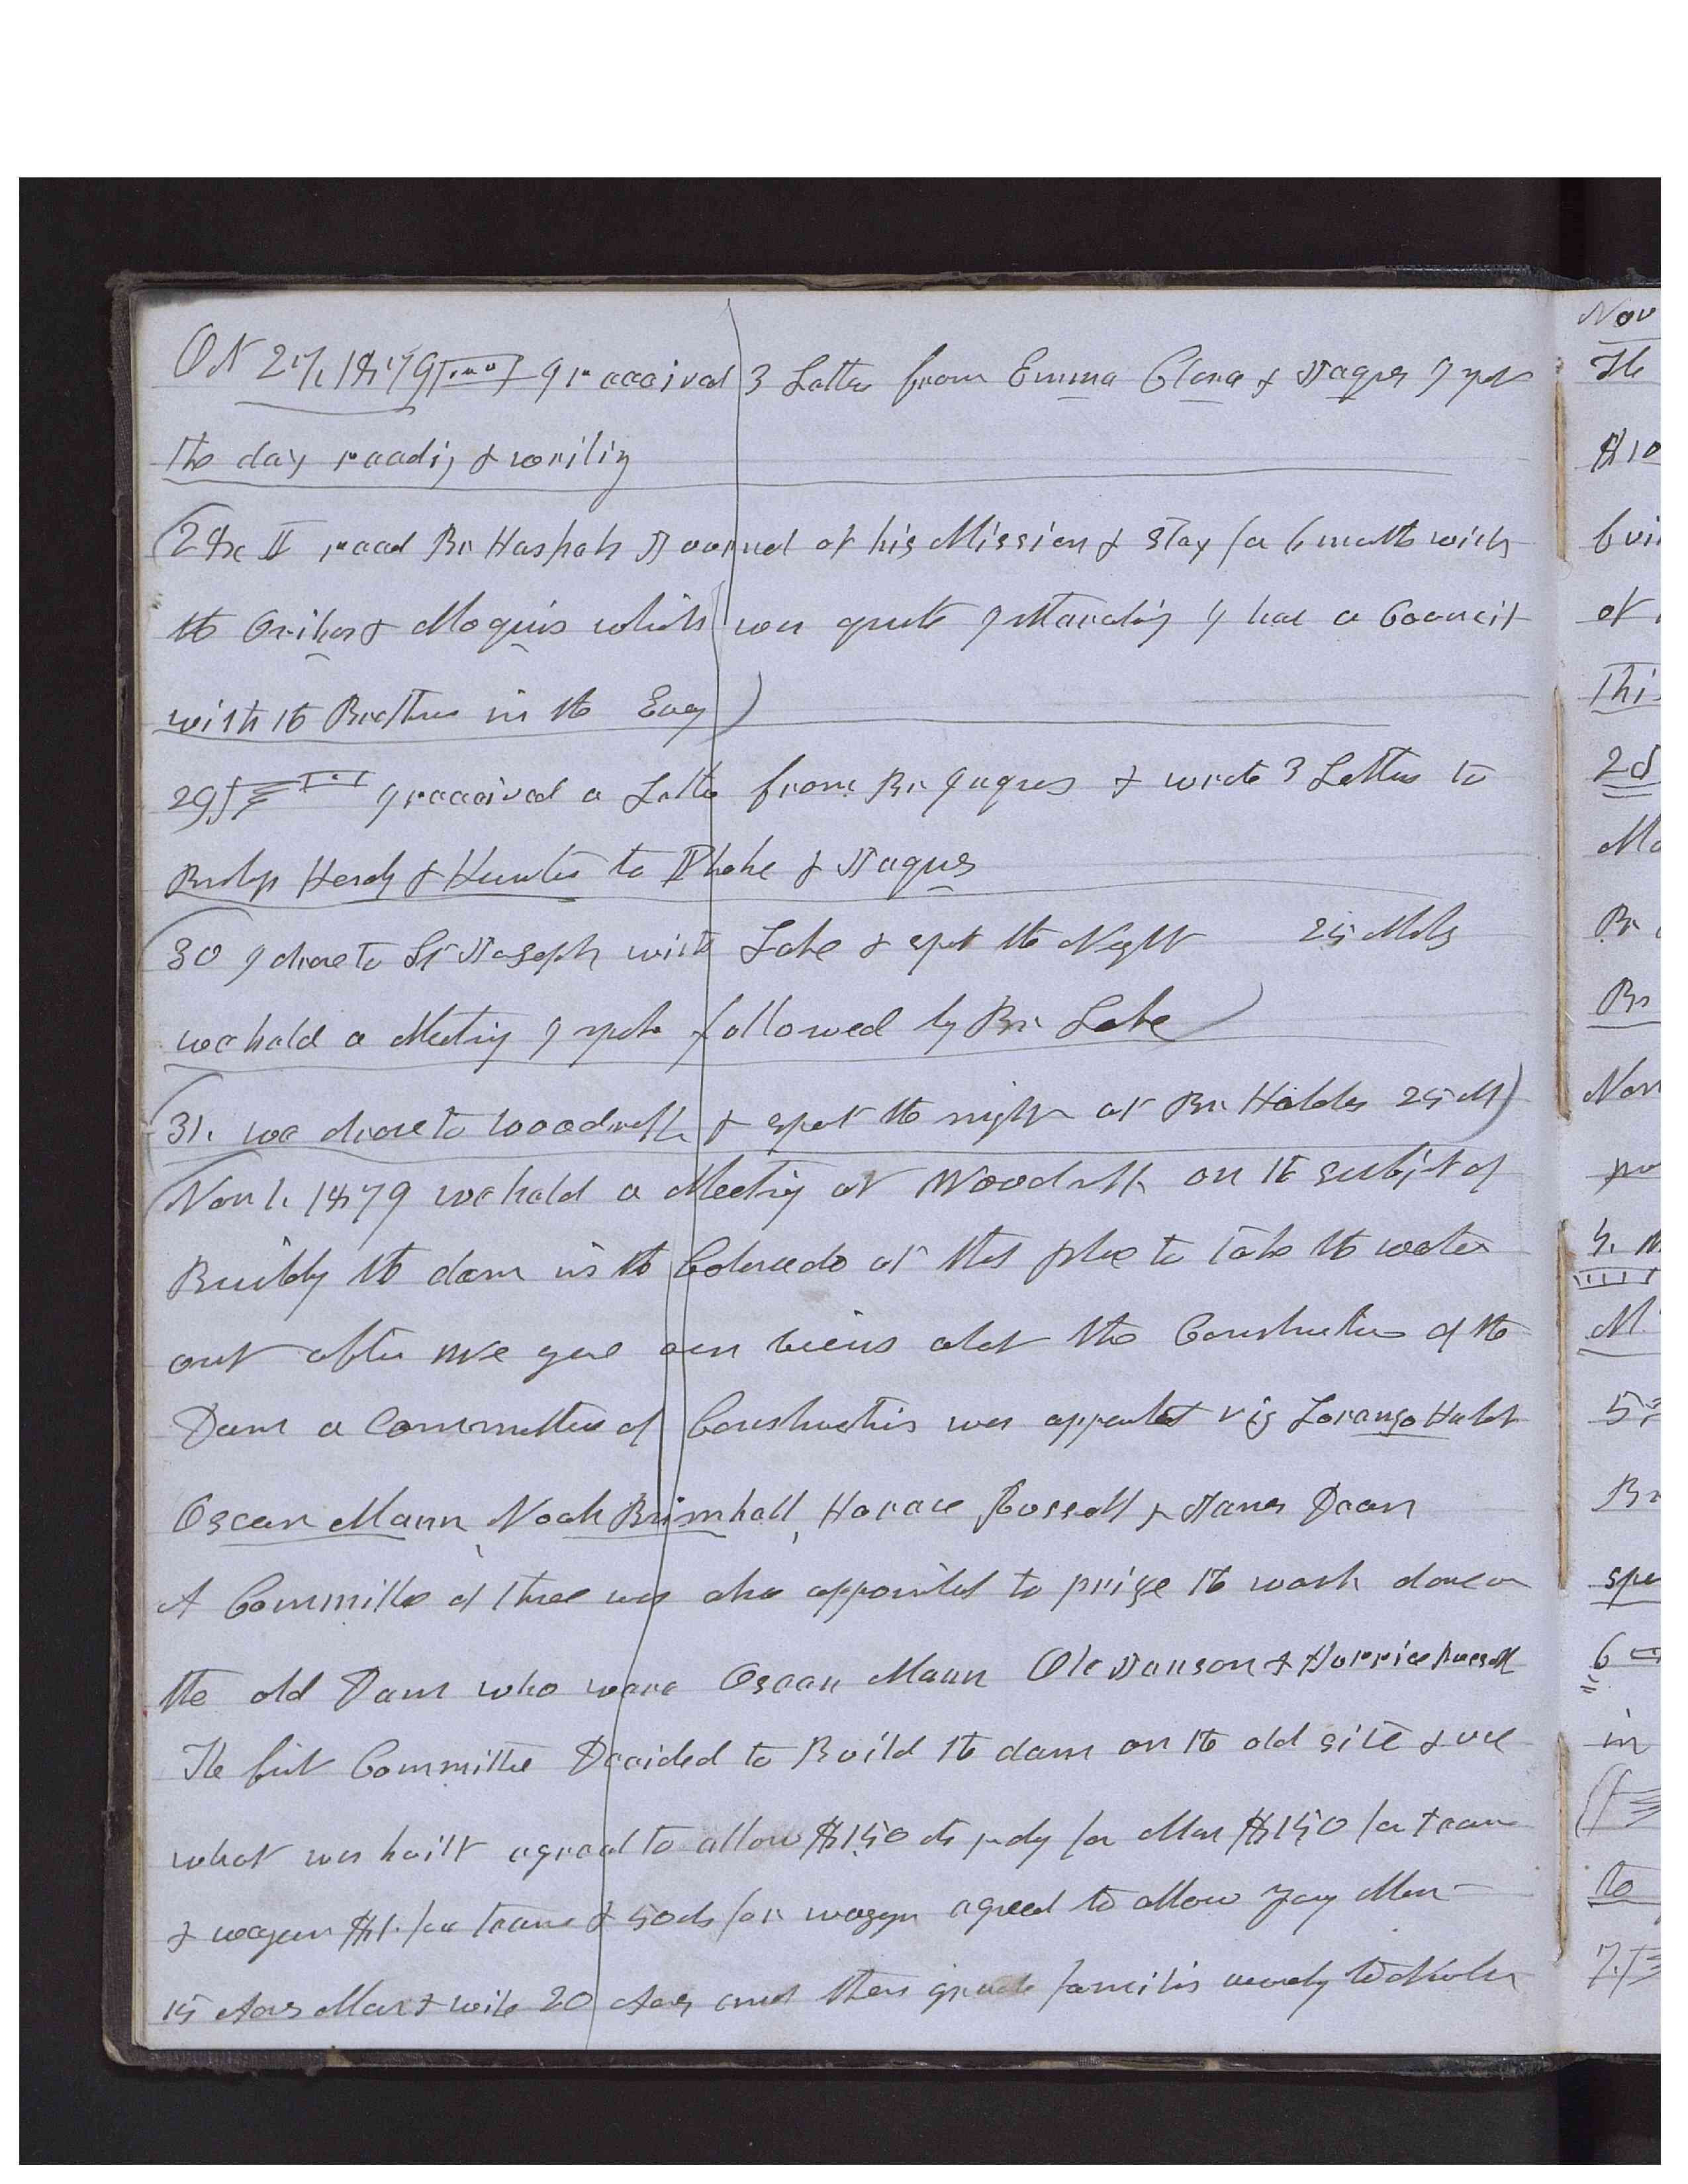 Oct 27, 1879 I received 3 Letters from Emma Clara & Jaques I spet
the day reading & writing
28 I read Br Haskals Journal of his Mission & Stay for 6 months with
the Oribas & Moquis which was quite intersting I had a Council
with the Brethren in the Evg
29 I received a Letter from Br Jaques & wrote 3 Letters to
Bishops Hardy & Hunter to Phebe & Jaques
30 I drove to St Joseph with Lake & spet the Night 25 Mils
we held a Meeting I spoke followed by Br Lake
31. we drove to Woodruff & spet the night at Br Hatdes 25 M
Nov 1. 1879 we held a Meeting at Woodruff on the subjet of
Building the dam in the Colorado at this place to take the water
out after we gave our views about the Construction of the
Dam a Committee of Construction was appointed viz Loranzo Hatch
Oscar Mann, Noah Brimhall, Horace Russell & James Dean
A Committe of three was also appointed to prize the work done on
the old Dam who were Oscar Mann Ole Janson & Horrice Russell
The first Committee Decided to Build the dam on the old site & use
what was built agreed to allow $150 cts pr day for Man $150 for team
& wagon $1. for team & 50 cts for wagon agreed to allow yong Men
15 Acrs Man & wife 20 Acres and then families
Nov
The
$10
of
This
2d
Br
Br
Nov
4. M
M
Br
spe
6
in
to
7.